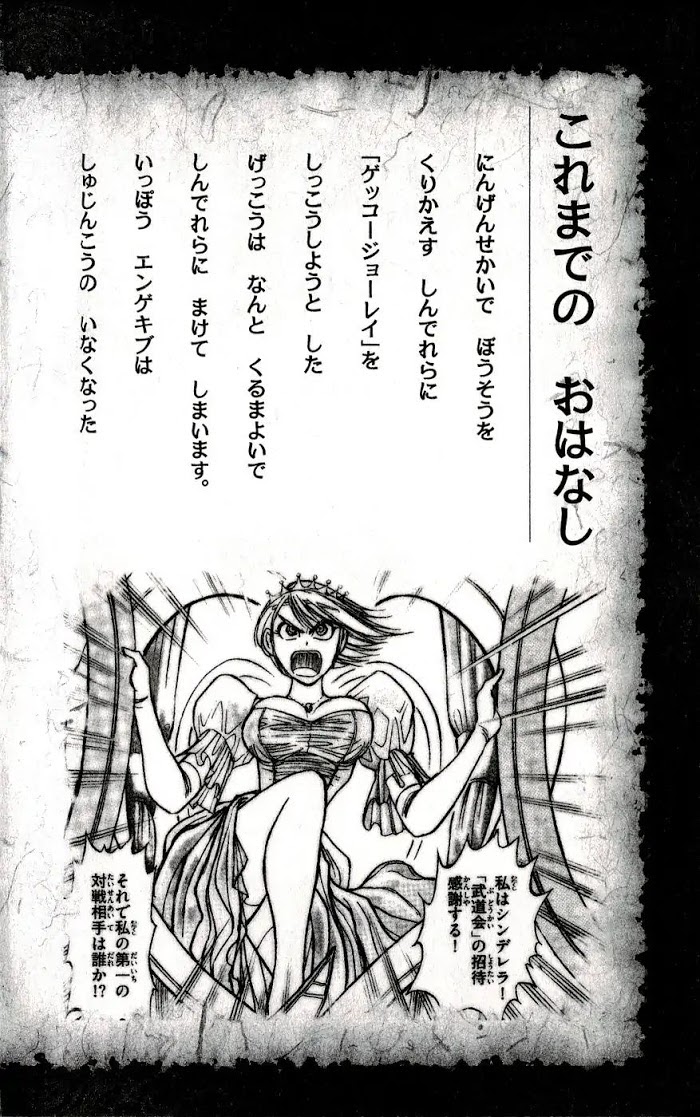 これまでの おはなし
にんげんせかいで ぼうそうを
くりかえす しんでれらに
「ゲッコージョーレイ」を
しっこうしようと した
げっこうは なんと くるまよいで
しんでれらに まけて しまいます。
いっぽう エンゲキブは
しゅじんこうの いなくなった
私はシンデレラ!
「武道会」の招待
感謝する!
それで私の第一の
対戦相手は誰か!?